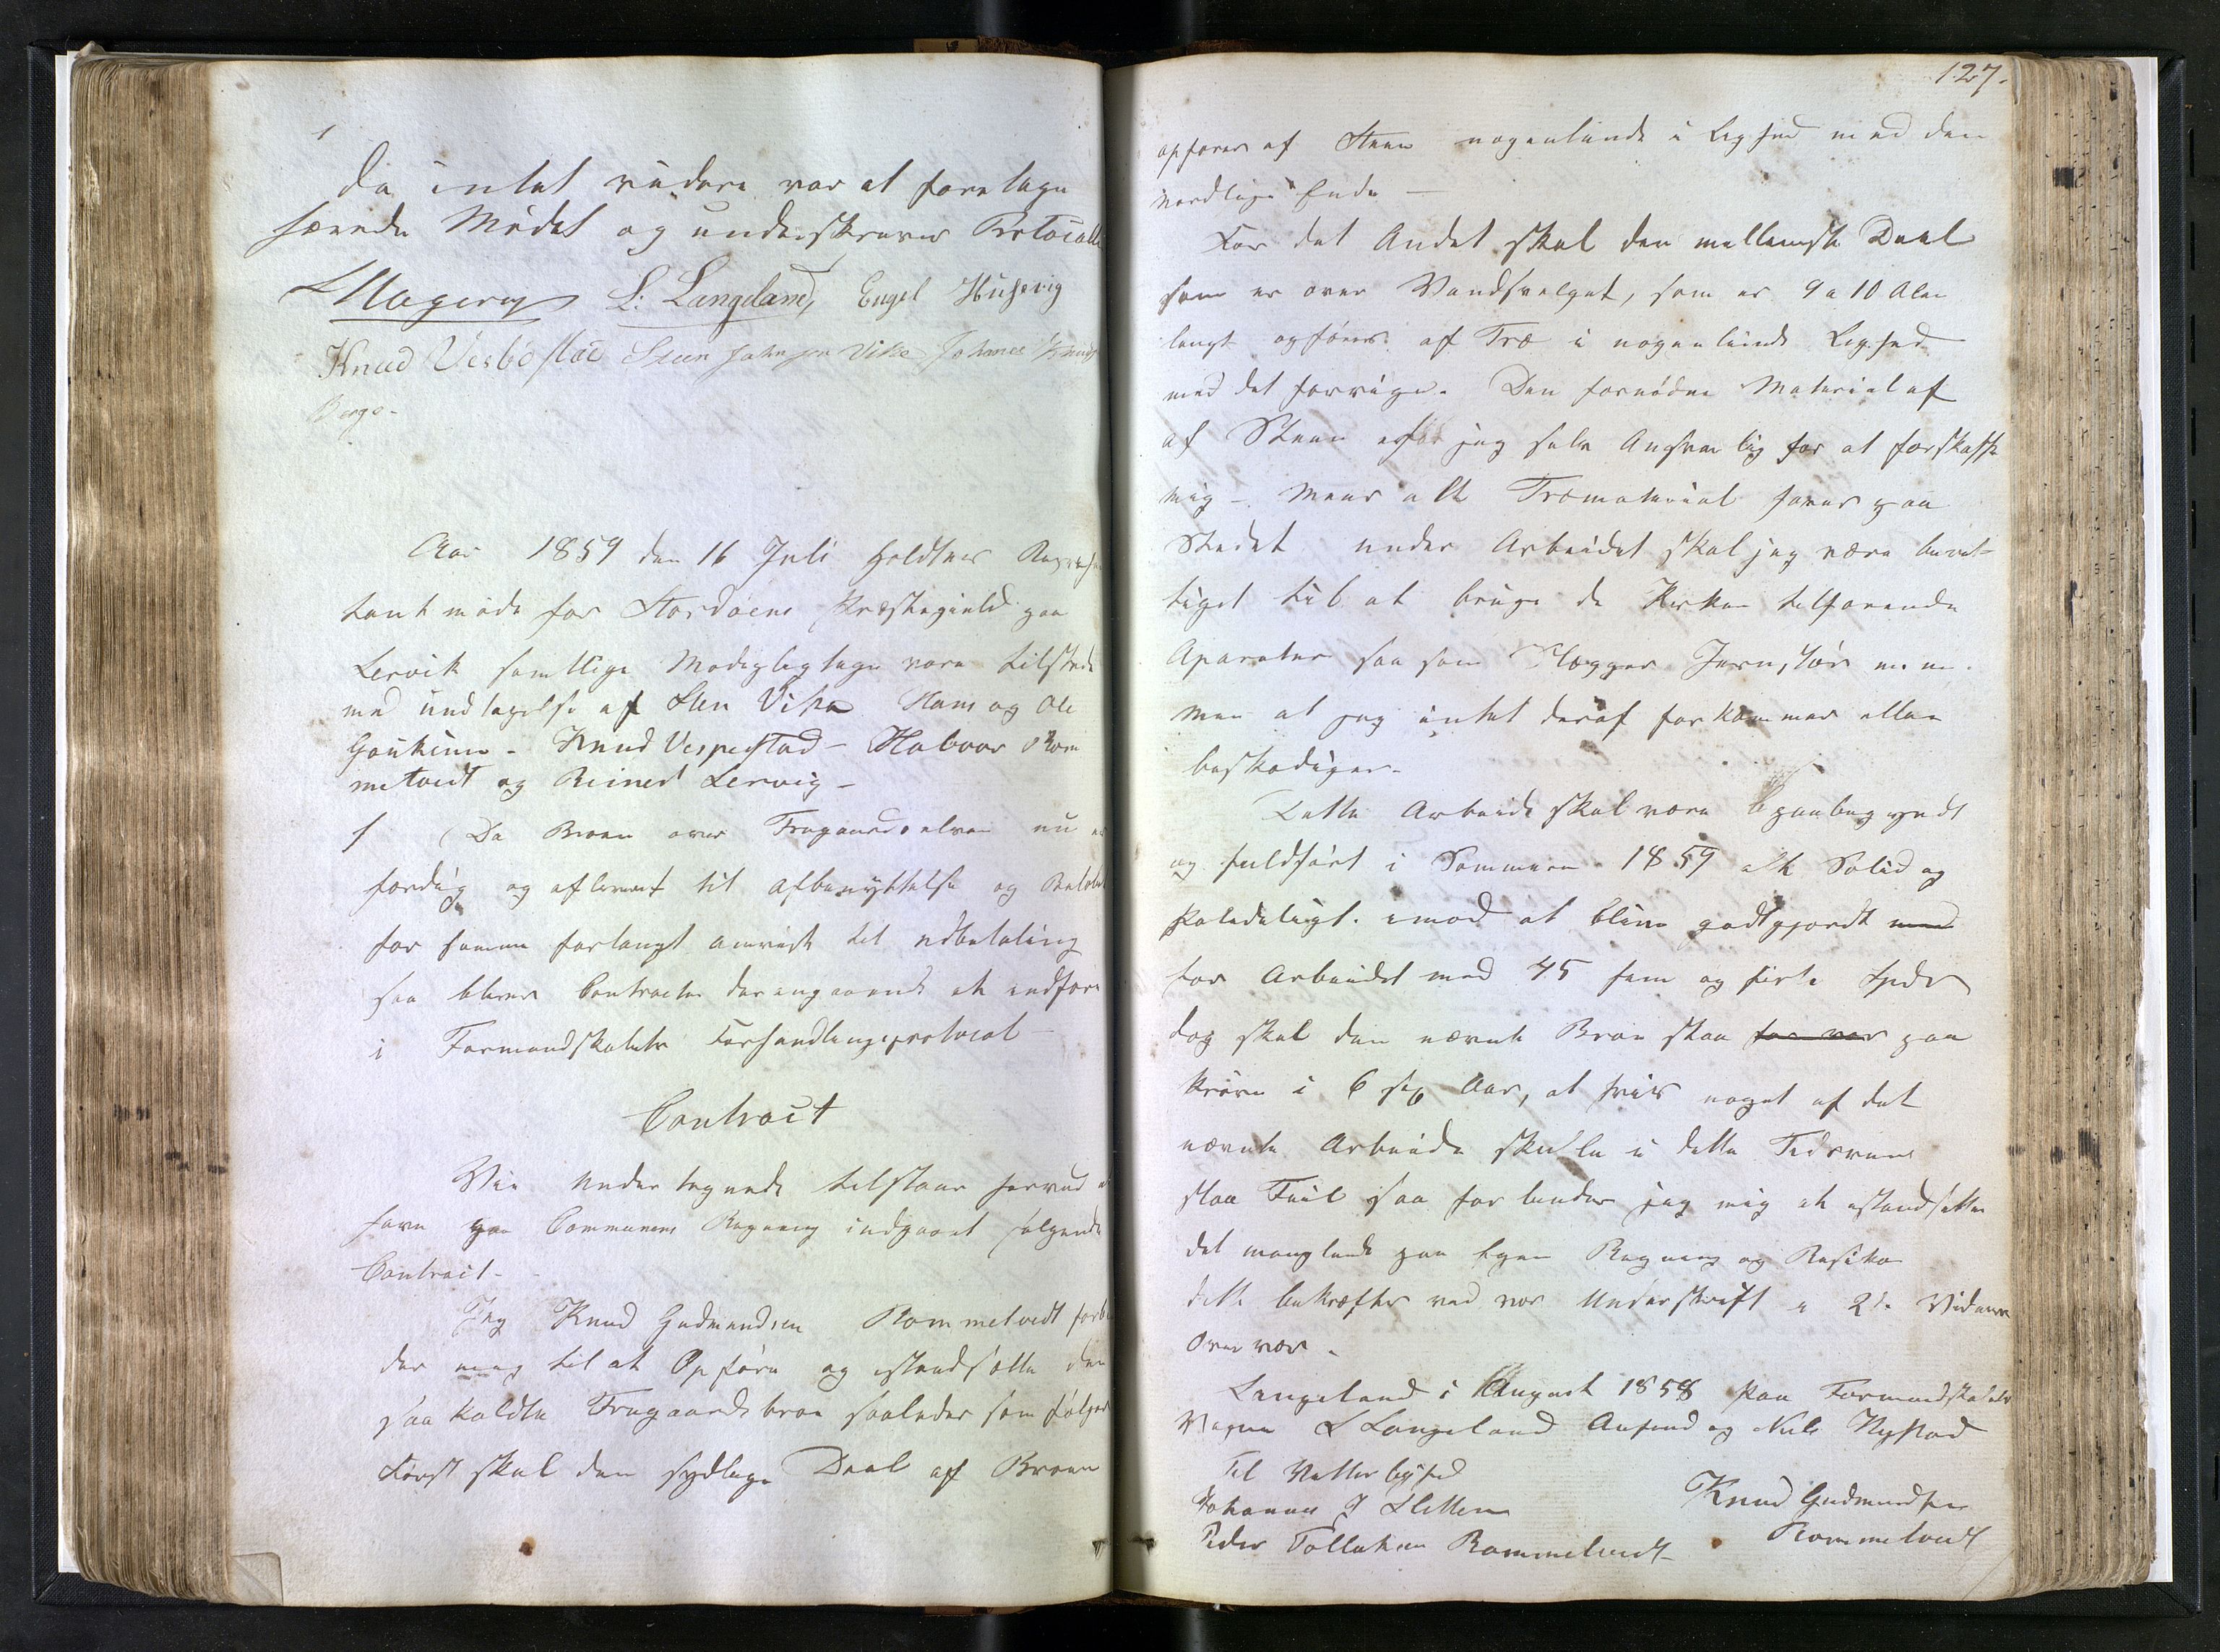 Da intet videre var at foretage
hævedes Mødet og underskreves Protocoll
Magerøy L. Langeland, Engel Huhevig
Knud Vesbøstad Steen Johnsen Vike Johanes Knuds
Berge-
Aar 1859 den 16 Juli holdtes Repræsen
tant møde for Stordøens Præstegield paa
Lervik samtlige Medeglegtage vare tilstede
med undtagelse af Sten Vika Hans og Ole
Goukum - Knud Vespestad - Halvor Rom
metvedt og Reinert Lervig -
1 Da Broen over Frugaardselven nu er
færdig og afleveret til afbenyttelse og Beløbet
for samme forlangt anvist til udbetaling
saa bliver Contracten derangaaende at indføre
i Formandskabets Forhandlingsprotocol -
Contract
Vie Undertegnede tilstaar herved at
have paa Communens Regning indgaaet følgende
Contract -
Jeg Knud Gudmundsen Rommetvedt forbin
der meg til at Opføre og istandsætte den
saa kaldte Frugaards broe saaledes som følger
Først skal den sydlige Deel af Broen
127.
opføres af Steen nogenlunde i Lighed med den
nordlige Ende -
For det Andet skal den mellemste Deel
som er over Vandsvelget, som er 9 a 10 Alen
langt opføres af Træ i nogenlunde Lighed
med det forrige. Den fornødne Material af
af Steen er jeg selv Ansvarlig for at forskaffe
mig - Mens alt Træmaterial føres paa
Stedet under Arbeidet skal jeg være beret-
tiget til at bruge de Kirken tilhørende
Aparater saa som Slægger Jernstør m.m.
men at jeg intet deraf forkommer eller
beskadiger -
Dette Arbeide skal være paabegyndt
og fuldført i Sommeren 1859 alt Solid og
Paalideligt. imod at blive godtgjordt med
for Arbeidet med 45 fem og firti Spdr
dog skal den nævnte Broe staa for vor paa
Prøve i 6 sex Aar, at hvis noget af det
nævnte Arbeide skulle i dette Tidsrum
slaa Feil saa forbinder jeg mig at istandsætte
det manglende paa Egen Regning og Resiko
dette bekræftes ved vor Underskrift i 2de Vidners
Overvær.
Langeland i August 1858 Paa Formandskabets
Vegne L Langeland Anfind og Nils Nysted
Til Vitterlighed
Johannes J Sletten
Peder Tollaksen Rommetvedt
Knud Gudmundsen
Rommetvedt